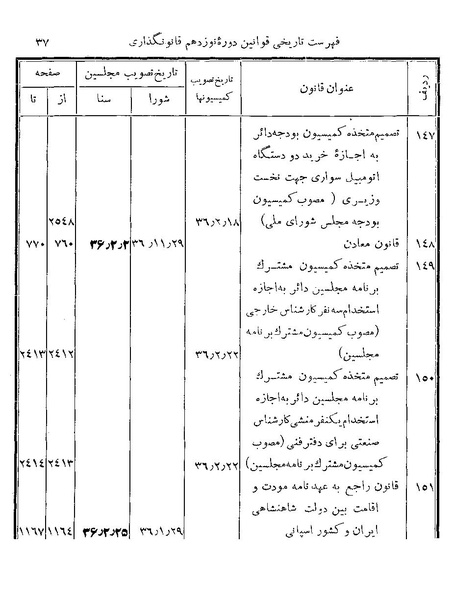 فهرست تاریخی قوانین دورهٔ نوزدهم قانونگذاری ۳۷
ردیف عنوان قانون تاریخ تصویب کمیسیونها تاریخ تصویب مجلسین صفحه
شورا سنا از تا
۱٤۷ تصمیم متخذه کمیسیون بودجه دائر
به اجازهٔ خرید دو دستگاه
اتومبیل سواری جهت نخست
وزیری ( مصوب کمیسیون
بودجه مجلس شورای ملی) ۳۶٫۲٫۱۸ ۲۵٤۸
۱٤۸ قانون معادن ۳۶٫۱۱٫۲۹ ۳۶٫۲٫۲ ۷۶۰ ۷۷۰
۱٤۹ تصمیم متخذه کمیسیون مشترك
برنامه مجلسین دائر به اجازه
استخدام سه نفر کارشناس خارجی
(مصوب کمیسیون مشترك برنامه
مجلسین) ۳۶٫۲٫۲۲ ۲٤۱۲ ۲٤۱۳
۱۵۰ تصمیم متخذه کمیسیون مشترك
برنامه مجلسین دائر به اجازه
استخدام یکنفر منشی کارشناس
صنعتی برای دفتر فنی (مصوب
کمیسیون مشترك برنامه مجلسین) ۳۶٫۲٫۲۲ ۲٤۱۳ ۲٤۱٤
۱۵۱ قانون راجع به عهدنامه مودت و
اقامت بین دولت شاهنشاهی
ایران و کشور اسپانی ۳۶٫۱٫۲۹ ۳۶٫۲٫۲۵ ۱۱۶٤ ۱۱۶۷